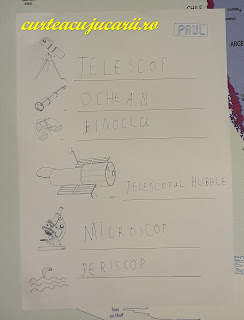 curteacujucarii.ro
PAUL
TELESCOP
OCHEAN
BINOCLU
TELESCOPUL HUBBLE
MICROSCOP
PERISCOP
CHILE
ARGE